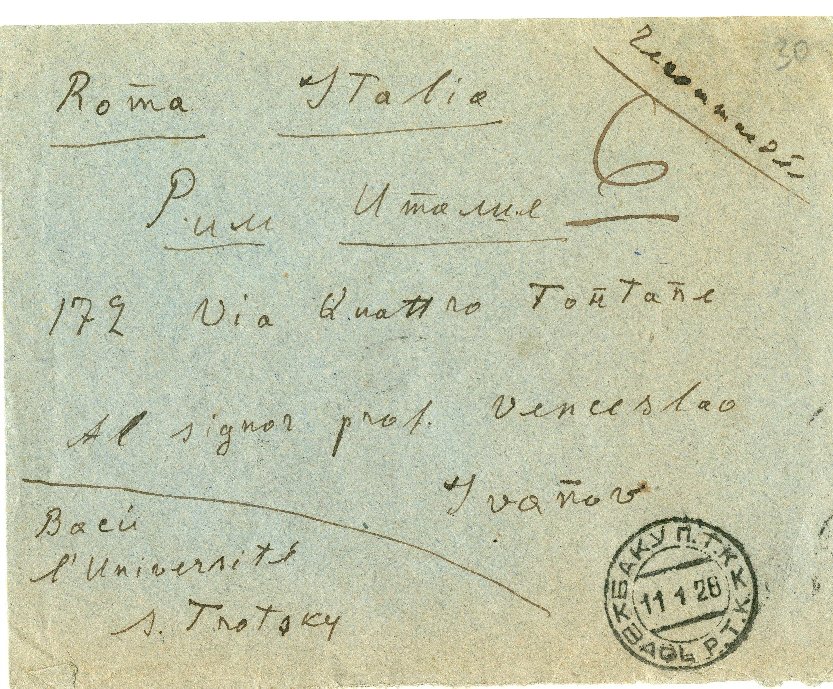 30
recommandée
Roma Italia
6
Рим Италия
172 Via Quattro Fontane
Al signor prof. Venceslao
Ivanov
Bacù
l'Université
s. Trotsky
БАКУ П.Т.К.
11 1 28
P.T.K.